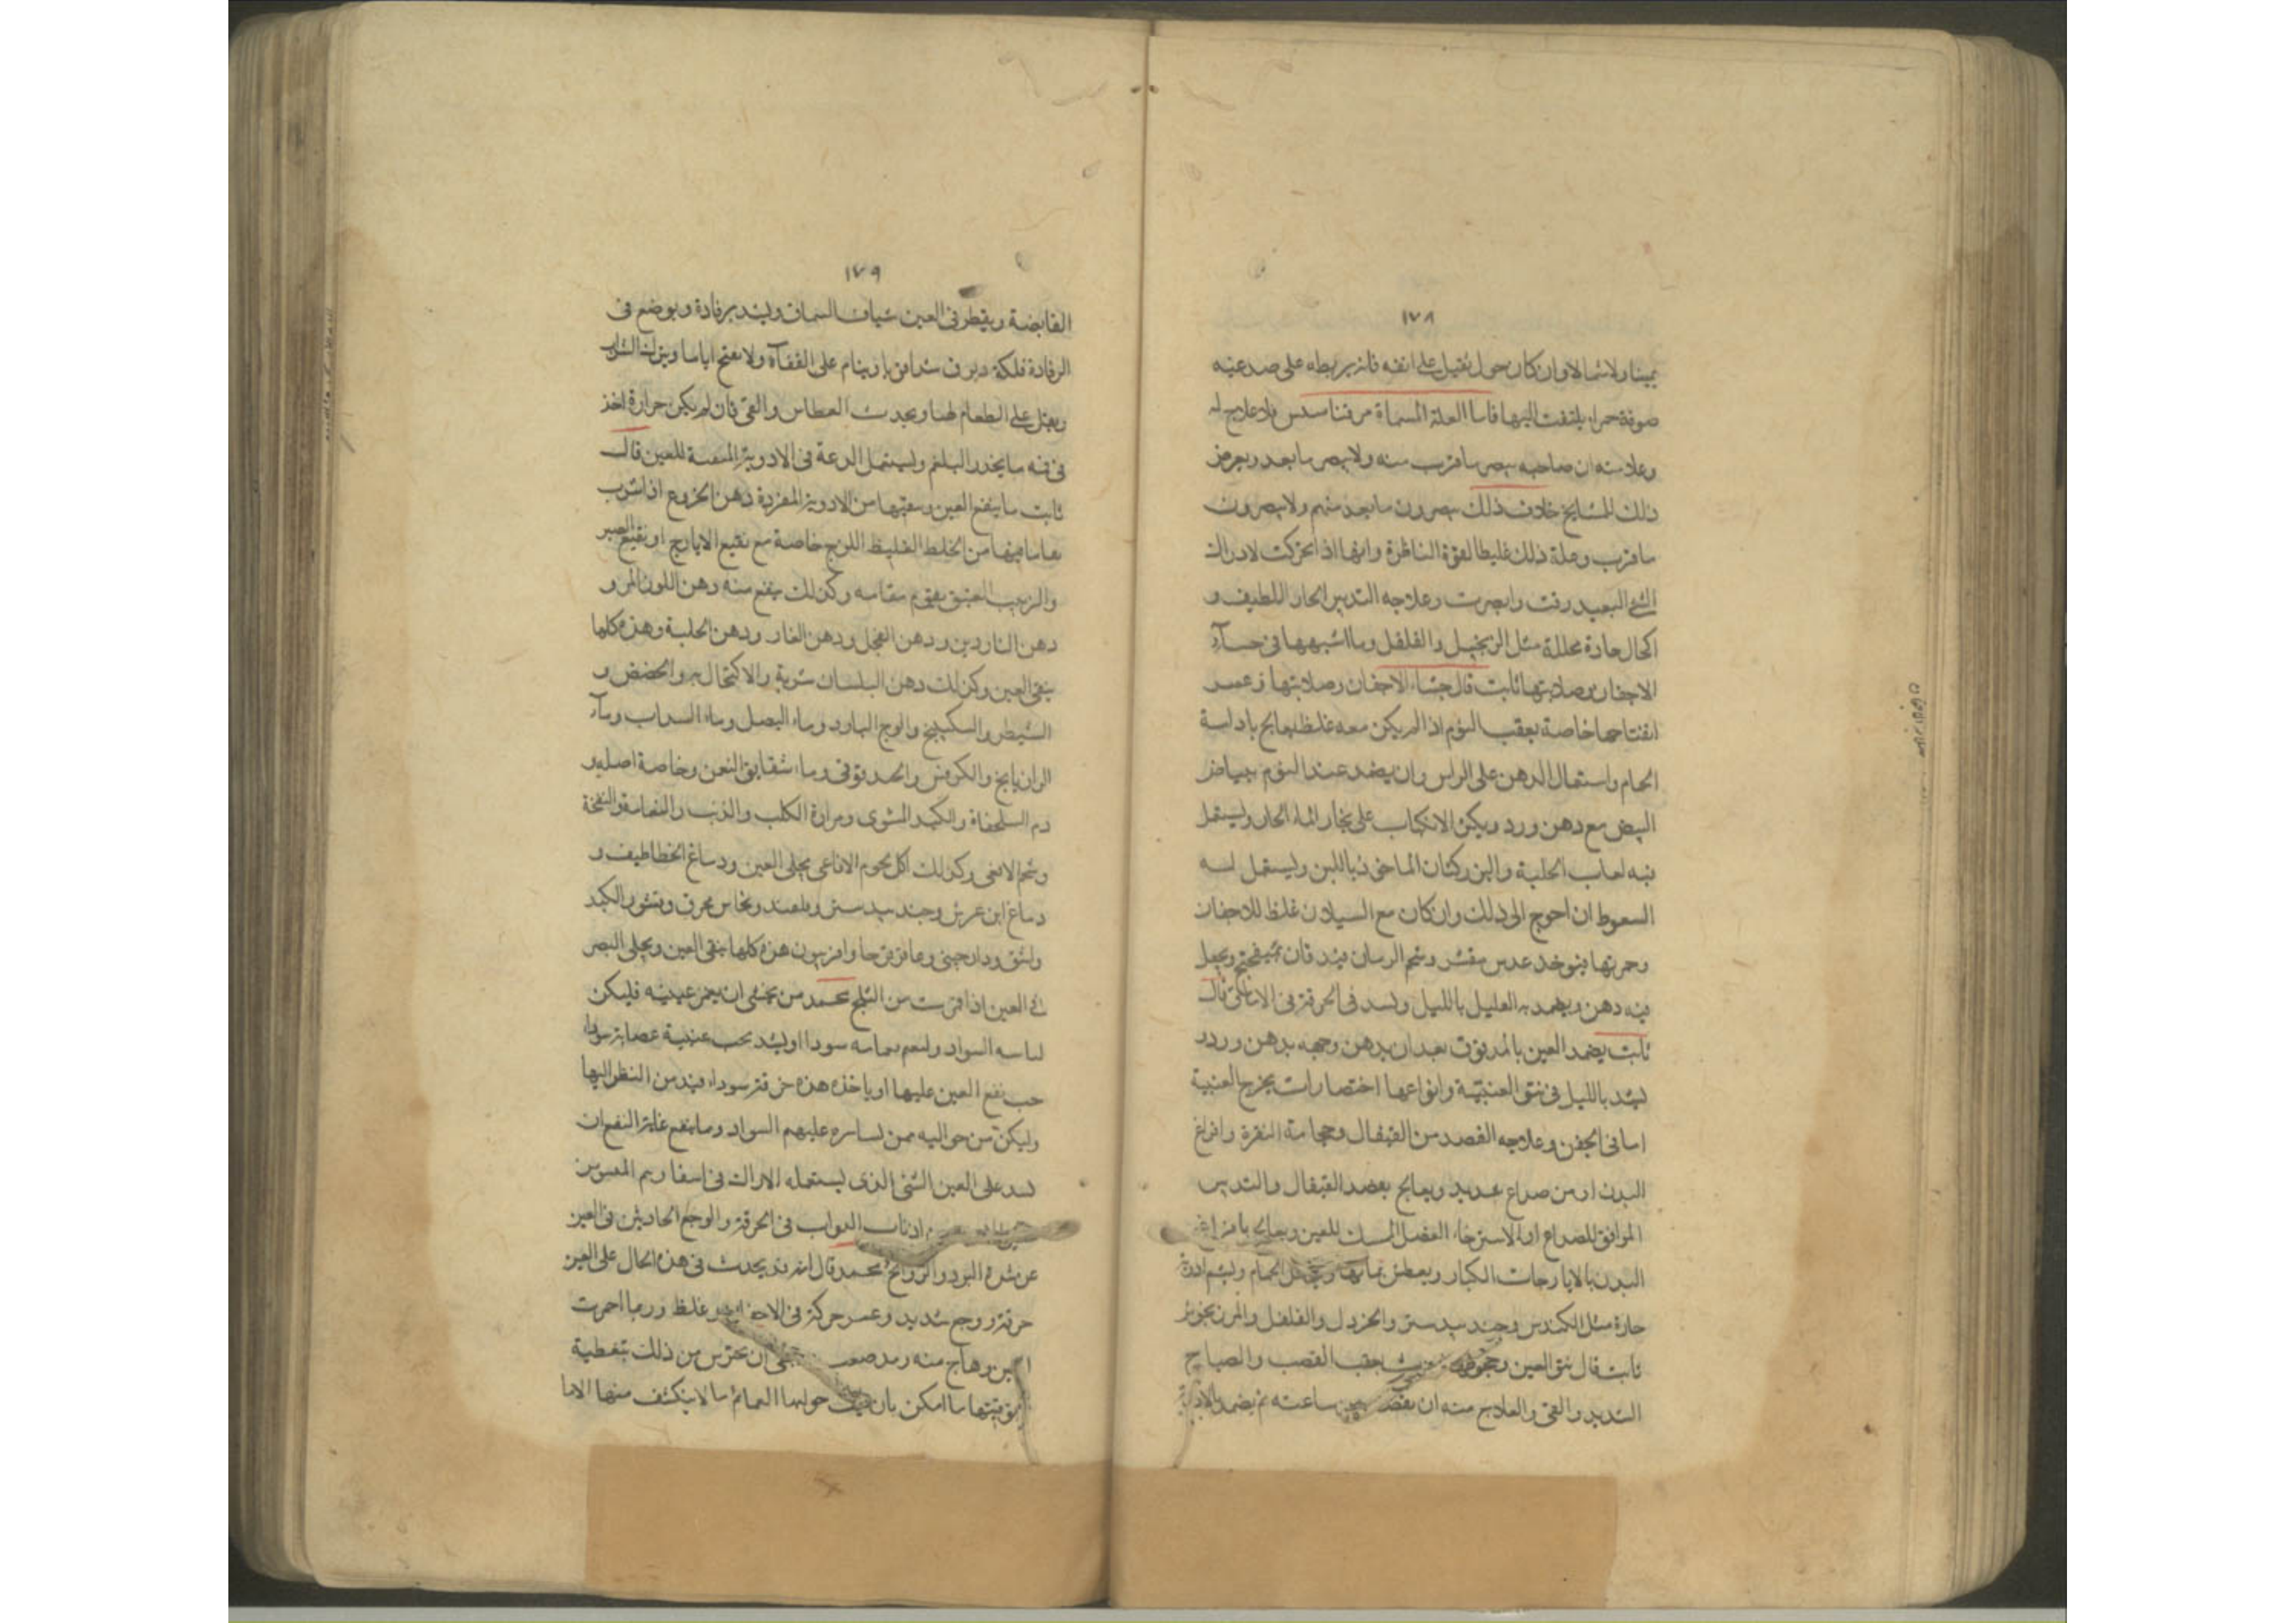 ١٧٨
يمينا ولا شمالا وان كان حول يقبل على انفه فانه يربطه على صدعيه
صوفة حمراء يلتفت اليها فاما العلة المسماة مرقناسدس فلا علاج له
وعلامته ان صاحبه يبصر ما قرب منه ولا يبصر ما بعد ويعرض
ذلك للمشايخ خلاف ذلك يبصرون ما بعد منهم ولا يبصرون
ما قرب وعلة ذلك غلظ القوة الناظرة وانها اذا تحركت لادراك
الشئ البعيد رقت وابصرت وعلاجه التدبير الحار اللطيف و
اكحال حادة محللة مثل الزنجبيل والفلفل وما اشبهها فى جسآء
الاجفان وصلابتها ثابت قال جسا الاجفان وصلابتها وعسر
انفتاحها خاصة بعقب النوم اذا لم يكن معه غلظ يعالج بادامة
الحمام واستعمال الدهن على الراس وان يضمد عند النوم ببياض
البيض مع دهن ورد ويكثر الانكباب على بخار الماء الحار ويستعمل
فيه لعاب الحلبة والبزركتان الماخوذ باللبن ويستعمل له
السعوط ان احوج الى ذلك وان كان مع السيلان غلظ للاجفان
وحمرتها فيوخذ عدس مقشر وشحم الرمان فيدقان بميفختج ويجعل
فيه دهن ويضمد به العليل بالليل ويشد فى الحرقة فى الاماقى قال
ثابت يضمد العين بالمدقوق بعد ان يدهن وجهه بدهن ورد و
يشد بالليل فى نتو العنبية وانواعها اختصارات بخرج العنبية
اما فى الجفن وعلاجه الفصد من القيفال وحجامة النقرة وافراغ
البدن او من صداع شديد ويعالج بفصد القيفال والتدبير
الموافق للصداع او لاسترخاء العضل الممسك للعين ويعالج بافراغ
البدن بالايارجات الكبار ويعطس بما ويدخل الحمام ويشم ادوية
حارة مثل الكندس وجندبيدستر والخردل والفلفل والمرزنجوش
ثابت قال نتو العين وجحوظها بعقب الغضب والصياح
الشديد والقى والعلاج منه ان يفصد من ساعته ثم يضمد بالادوية
١٧٩
القابضة ويقطر فى العين شياف السماق ويشد برفادة ويوضع فى
الرفادة فلكة ويرفق شدا وثيقا وينام على القفآء ولا يفتح اياما ويترك الشراب
ويقل على الطعام ويحدث العطاس والقى فان لم يكن حرارة اخذ
فى فمه ما يحدر البلغم ويستعمل الدعة فى الادوية المنقية للعين قال
ثابت ما ينفع العين وينقيها من الادوية المفردة دهن الخروع اذا شرب
نقا ما فيها من الخلط الغليظ اللزج خاصة مع نقيع الايارج او نقيع الصبر
والزبيب العتيق يقوم مقامه وكذلك ينفع منه دهن اللوز المر و
دهن الناردين ودهن الفجل ودهن الغار ودهن الحلبة وهذه كلها
ينقى العين وكذلك دهن البلسان شربة والاكتحال به والحضض و
الشيطرج والسكبينج والوج البارد وماء البصل وماء السداب وماء
الرازيانج والكرفس والحندقوقى وماء شقايق النعمن وخاصة اصله و
دم السلحفاة والكبد المشوى ومرارة الكلب والذئب والنعامة والقبجة
وشحم الافعى وكذلك اكل لحوم الافاعى يجلى العين ودماغ الخطاطيف و
دماغ ابن عرس وجندبيدستر وقلقند ونحاس محرق وقشور الكندر
واشق ودارصينى وعاقرقرحا وافربيون هذه كلها ينقى العين ويجلى البصر
فى العين اذا قمرت من الثلج محمد من يخشى ان يقمر عينيه فليكن
لباسه السواد وليعم بعمامة سودا او ليشد تحت عينيه عصابة سوداء
حيث يقع العين عليها او ياخذ بيده خرقة سوداء فيدمن النظر اليها
وليكن من حواليه ممن يسايره عليهم السواد ومما ينفع غاية النفع ان
يشد على العين الشئ الذى يستعمله الاتراك فى اسفارهم المعمول من
اذناب الدواب فى الحرقة والوجع الحادثين فى العين
عن شدة البرد والروائح محمد قال انه قد يحدث فى هذه الحال على العين
حرقة ووجع شديد وعسر حركة فى الاجفان وغلظ وربما احمرت
العين وهاج منه رمد صعب فينبغى ان يحترس من ذلك بتغطية
وتوقيتها ما امكن بان يلف حواليها العمائم ما لا ينكشف منها الا ما